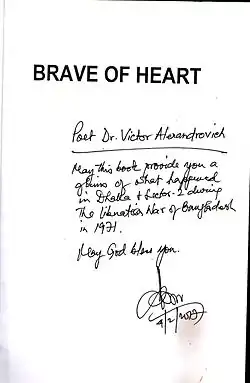 BRAVE OF HEART
Poet Dr. Victor Alexandrovich
May this book provide you a
glims of what happened
in Dhaka & Sector-2 during
the Liberation War of Bangladesh
in 1971.
May God bless you.